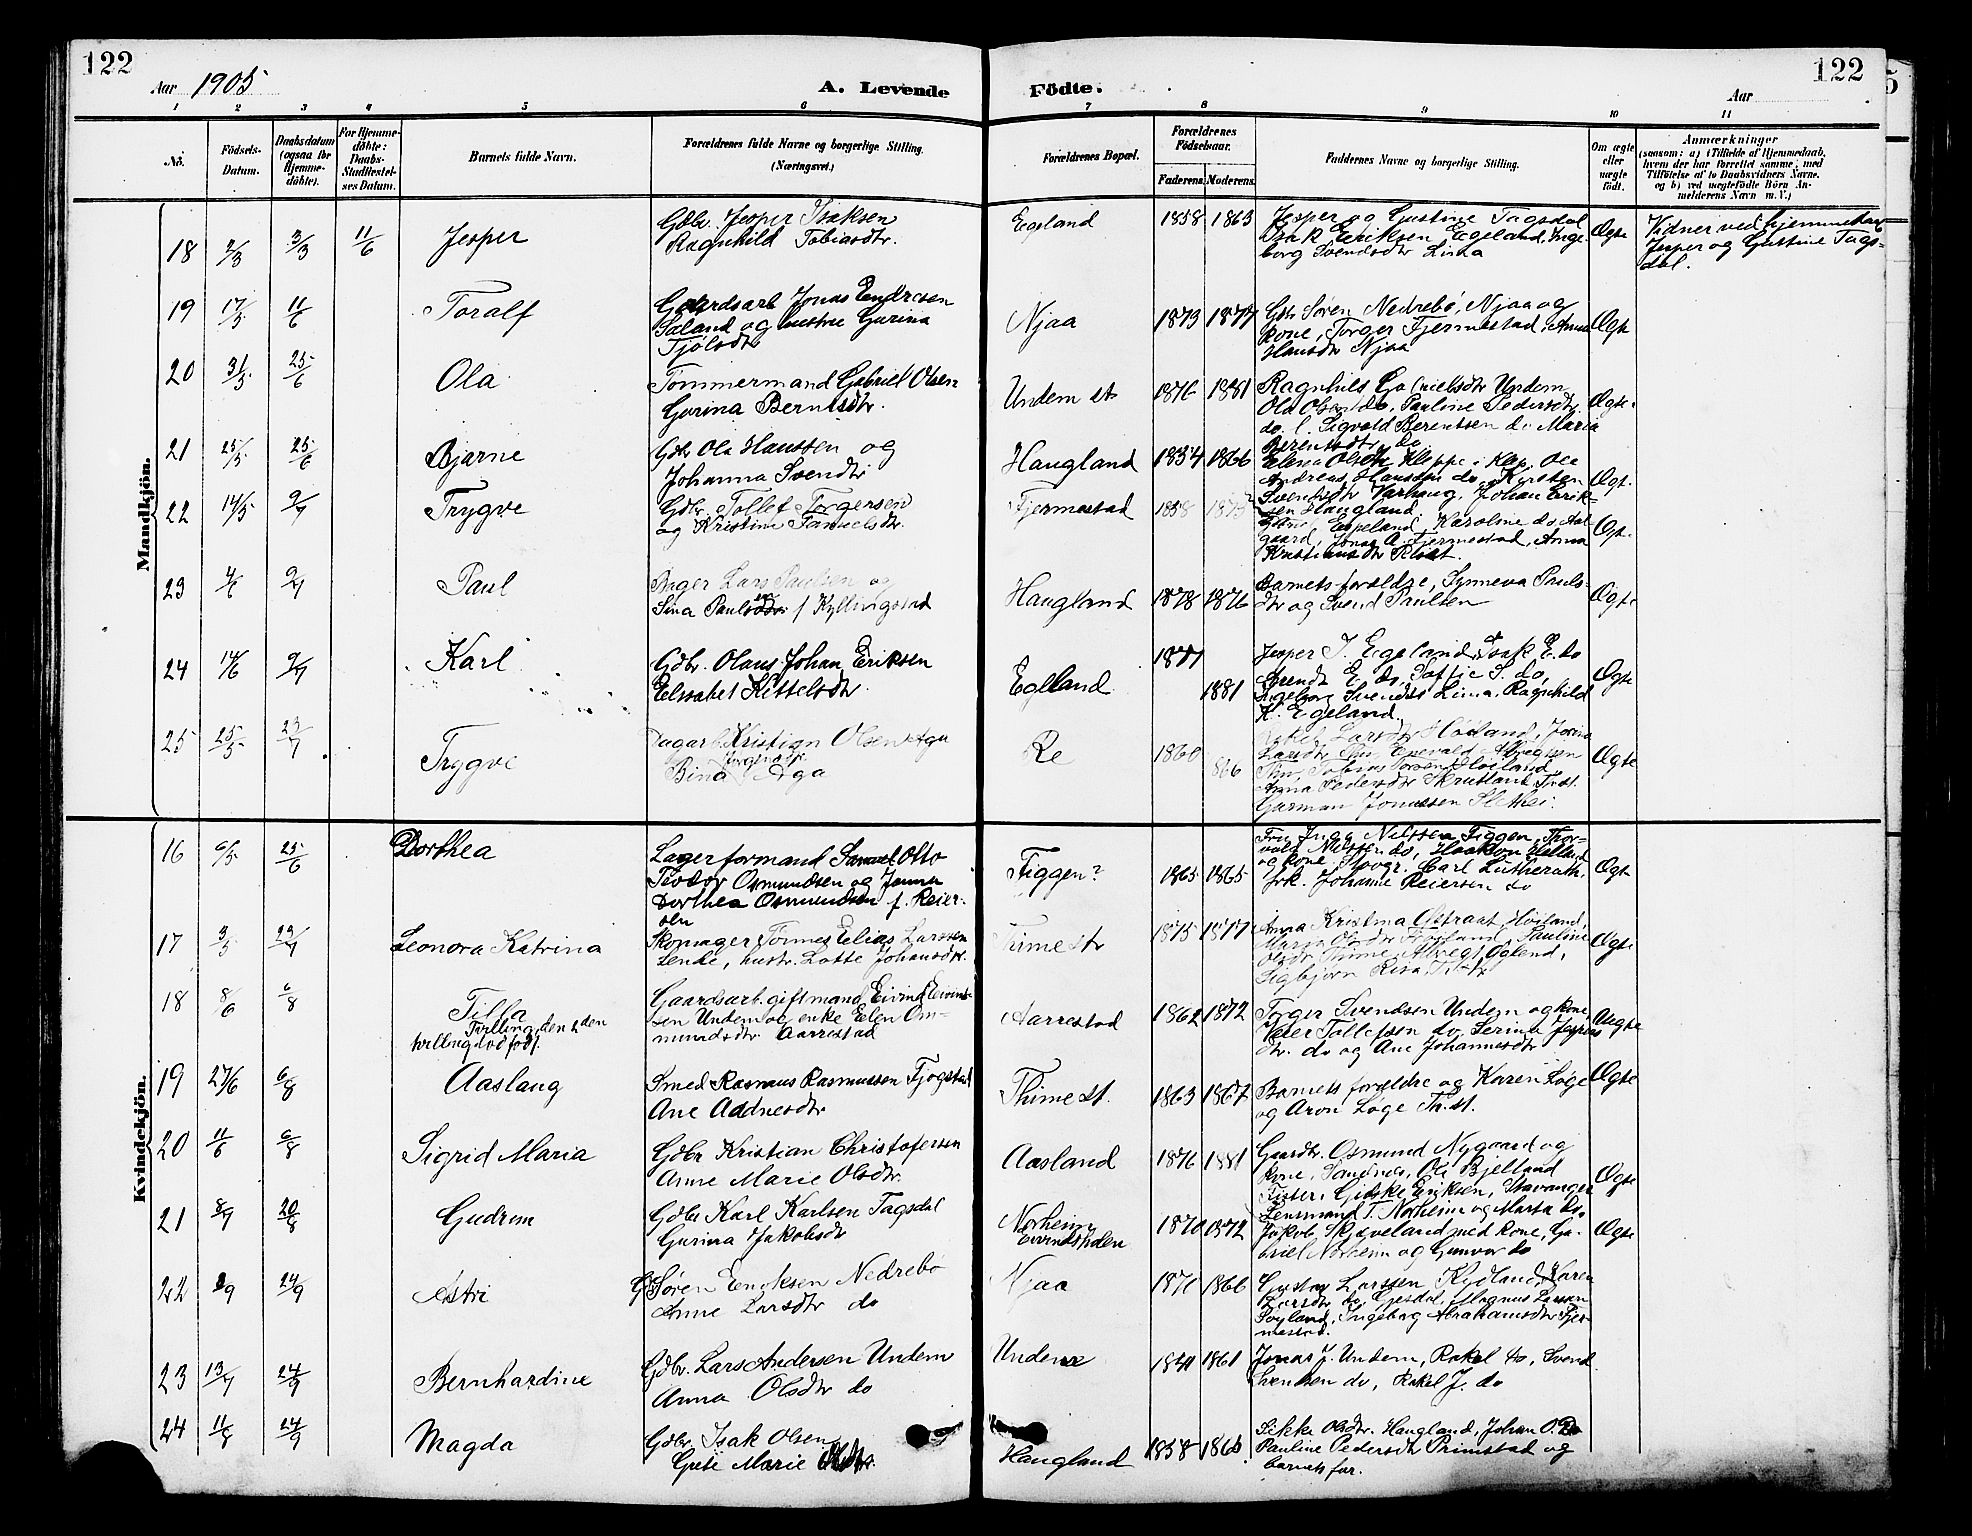 122
122
Aar 1905
A. Levende
Födte.
Aar
1 2 3 4 5 6 7 8 9 10 11
No.
Födsels-
Datum.
Daabsdatum
(ogsaa for
Hjemme-
döbte).
For Hjemme-
döbte:
Daabs-
Stadfæstel-
ses Datum.
Barnets fulde Navn.
Forældrenes fulde Navne og borgerlige Stilling.
(Næringsvei.)
Forældrenes Bopæl.
Forældrenes
Födselsaar.
Faderens. Moderens.
Faddernes Navne og borgerlige Stilling.
Om ægte
eller
uægte
födt.
Anmærkninger
(saasom: a) i Tilfælde af Hjemmedaab,
hvem der har forrettet samme, med
Tilföielse af to Daabsvidners Navne.
og b) ved uægtefödte Börn An-
melderens Navn m. V.)
Mandkjön.
18 2/3 3/3 11/6 Jesper
Gdbr. Jesper Isaksen
Ragnhild Tobiasdtr.
Egeland 1858 1863
Jesper og Gustine Tagsdal
Isak Eriksen Egeland, Inge-
borg Svendsdtr Lima
Ægte
Vidner ved hjemmedaab
Jesper og Gustine Tags-
dal.
19 17/5 11/6 Toralf
Gaardsarb Jonas Endresen
Saland og hustru Gurina
Tjølsdtr
Njaa 1873 1877
Gbr Søren Nedrebø, Njaa og
kone, Torger Fjermestad, Anna
Hansdtr Njaa
Ægte
20 31/5 25/6 Ola
Tømmermand Gabriel Olsen
Gurina Berntsdtr.
Undem st 1876 1881
Ragnhild Gabrielsdtr Undem
Ola Olsen do, Pauline Pedersdtr
do. l. Sigvald Berentsen do Maria
Berentsdtr do
Ægte.
21 25/5 25/6 Bjarne
Gdbr Ola Hanssen og
Johanna Svendtr
Haugland 1854 1866
Elena Olsdtr Kleppe i Klep, Ole
Andreas Hansen do, Kirsten
Svendsdtr Varhaug, Johan Erik-
sen Haugland
Ægt.
22 14/5 9/7 Trygve
Gdbr. Tollef Torgersen
og Kristine Samuelsdtr.
Fjermestad 1858 1873
Espeland, Karoline do, Aal-
gaard, Jonas A. Fjermestad, Anna
Kristiansdtr
Ægt.
23 4/6 9/7 Paul
Bager Lars Paulsen og
Sina Paulsen f Kyllingstad
Haugland 1878 1876
Barnets forældre, Synneva Pauls-
dtr og Svend Paulsen
Ægte
24 14/6 9/7 Karl
Gdbr. Olaus Johan Eriksen
Elisabet Kittelsdtr.
Egeland 1877 1881
Jesper I. Egeland, Isak E. do
Berendt E. do, Soffie S. do,
Ingeborg Svendsdtr Lima, Ragnhild
K. Egeland.
Ægte
25 25/5 23/7 Trygve
Dagarb. Kristian Olsen Aga
Bina Jørgensdtr Aga
Re 1860 866
Larsdtr Høiland, Jorina
Larsdtr Thu, Enevald Abregtsen
Thu, Tobias Torsen Høiland
Anna Pedersdtr Skrudland, Tu st.
Garman Jonassen Slethei.
Ægte
Kvindekjön.
16 6/5 25/6 Dorthea
Lagerformand Samuel Otto
Teodor Osmundsen og Jenna
Dorthea Osmundsen f. Reier-
sen
Figgen? 1865 1865
Fru Inga Nilssen Figgen, Thor-
vald Nilssen do, Haakon Helland
og kone, Stavgr. Carl Lutherath,
frk. Johanne Reiersen do
Ægte
17 3/5 23/7 Leonora Katrina
Skomager Tønnes Elias Larsen
Lende, hustr. Lotte Johansdtr.
Thime st 1875 1877
Anna Kristina Østraat, Høiland,
Maria Olsdtr Høiland, Pauline
Olsdtr Thime, Abregt Øglend,
Sigbjørn Risa T. st
Ægte
18 8/6 6/8 Tilla
Tvilling, den 2den
tvilling dødfødt.
Gaardsarb. gift mand Eivind Eivind-
sen Undem og enke Elen Om-
mundsdtr Aarrestad
Aarrestad 1862 1872
Torger Svendsen Undem og kone,
Peter Tollefsen do, Serina Jespers
dtr. do og Ane Johannesdtr
Uægte
19 27/6 6/8 Aaslaug
Smed Rasmus Rasmussen Fjogstad
Ane Adnesdtr
Thime st. 1863 1867
Barnets forældre og Karen Løge
og Aron Løge Th. st.
Ægte
20 11/6 6/8 Sigrid Maria
Gdbr Kristian Christofersen
Anne Marie Olsdtr.
Aasland 1876 1881
Gaardbr. Osmund Nygaard og
kone, Sandnes, Ole Bjelland
Fister, Gidske Eriksen, Stavanger
Ægte
21 8/7 20/8 Gudrun
Gdbr Karl Karlsen Tagsdal
Gurina Jakobsdtr
Norheim
Eivindsholen 1870 1872
Lensmand T. Norheim og Marta do,
Jakob Skjæveland med kone, Ga-
briel Norheim og Gunvor do
Ægte
22 2/9 24/9 Astri
G Søren Eriksen Nedrebø
Anne Larsdtr do
Njaa 1871 1866
Gustav Larssen Kydland, Karen
Larsdtr do, Gjesdal, Magnus Larsen
Søyland, Ingeborg Abrahamsdtr Fjer-
mestad.
23 13/7 24/9 Bernhardine
Gdbr. Lars Andersen Undem
Anna Olsdtr do
Undem 1841 1861
Jonas J. Undem, Rakel do, Svend
Svendsen do, Rakel J. do
24 11/8 24/9 Magda
Gdbr. Isak Olsen
Grete Marie Olsdtr.
Haugland 1858 1860
Sikke Olsdtr. Haugland, Johan O. Do
Pauline Pedersdtr Primstad og
barnets far.